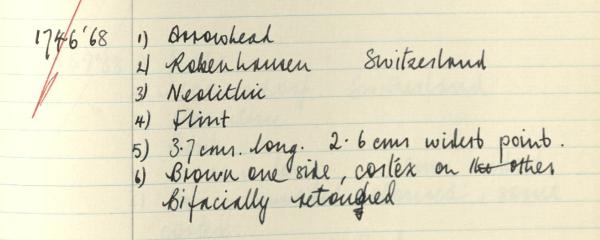 174·6'68 1) Arrowhead
2) Robenhausen Switzerland
3) Neolithic
4) Flint
5) 3·7 cms. long. 2·6 cms widest point.
6) Brown one side, cortex on the other
Bifacially retouched